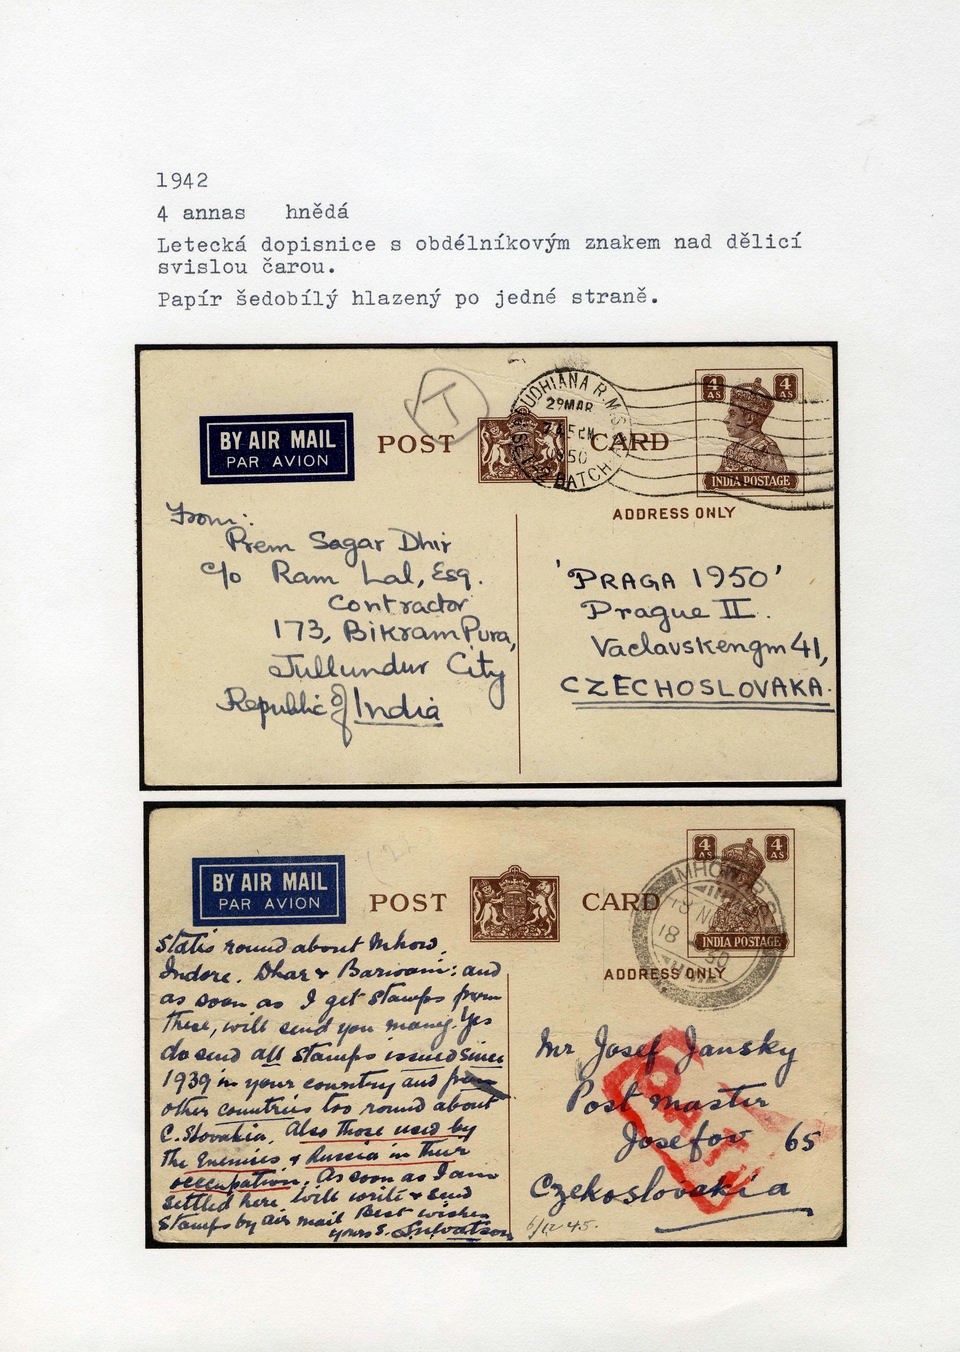 1942
4 annas hnědá
Letecká dopisnice s obdélníkovým znakem nad dělicí
svislou čarou.
Papír šedobílý hlazený po jedné straně.
BY AIR MAIL
PAR AVION
POST CARD
T
LUDHIANA R.M.S.
29 MAR
BATCH
4 AS
4 AS
INDIA POSTAGE
ADDRESS ONLY
From:
Prem Sagar Dhir
c/o Ram Lal, Esq.
Contractor
173, Bikram Pura,
Jullundur City
Republic of India
'PRAGA 1950'
Prague II.
Vaclavskengm 41,
CZECHOSLOVAKA.
BY AIR MAIL
PAR AVION
POST CARD
MHOW
4 AS
4 AS
INDIA POSTAGE
ADDRESS ONLY
States round about Mhow,
Indore. Dhar & : and
as soon as I get stamps from
these, will send you many. Yes
do send all stamps issued since
1939 in your country and from
other countries too round about
C. Slovakia. Also those used by
the Enemies & Russia in their
occupation. As soon as I am
settled here will write & send
stamps by air mail Best wishes
yours S.
Mr Josef Jansky
Post master
Josefov 65
Czekoslovakia
6/12 45.